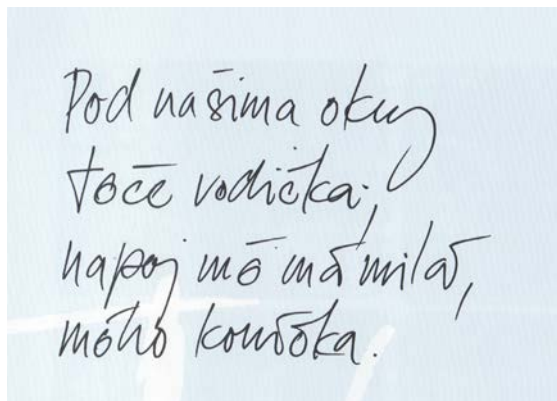 Pod našima okny
teče vodička;
napoj mě má milá,
mého koníčka.